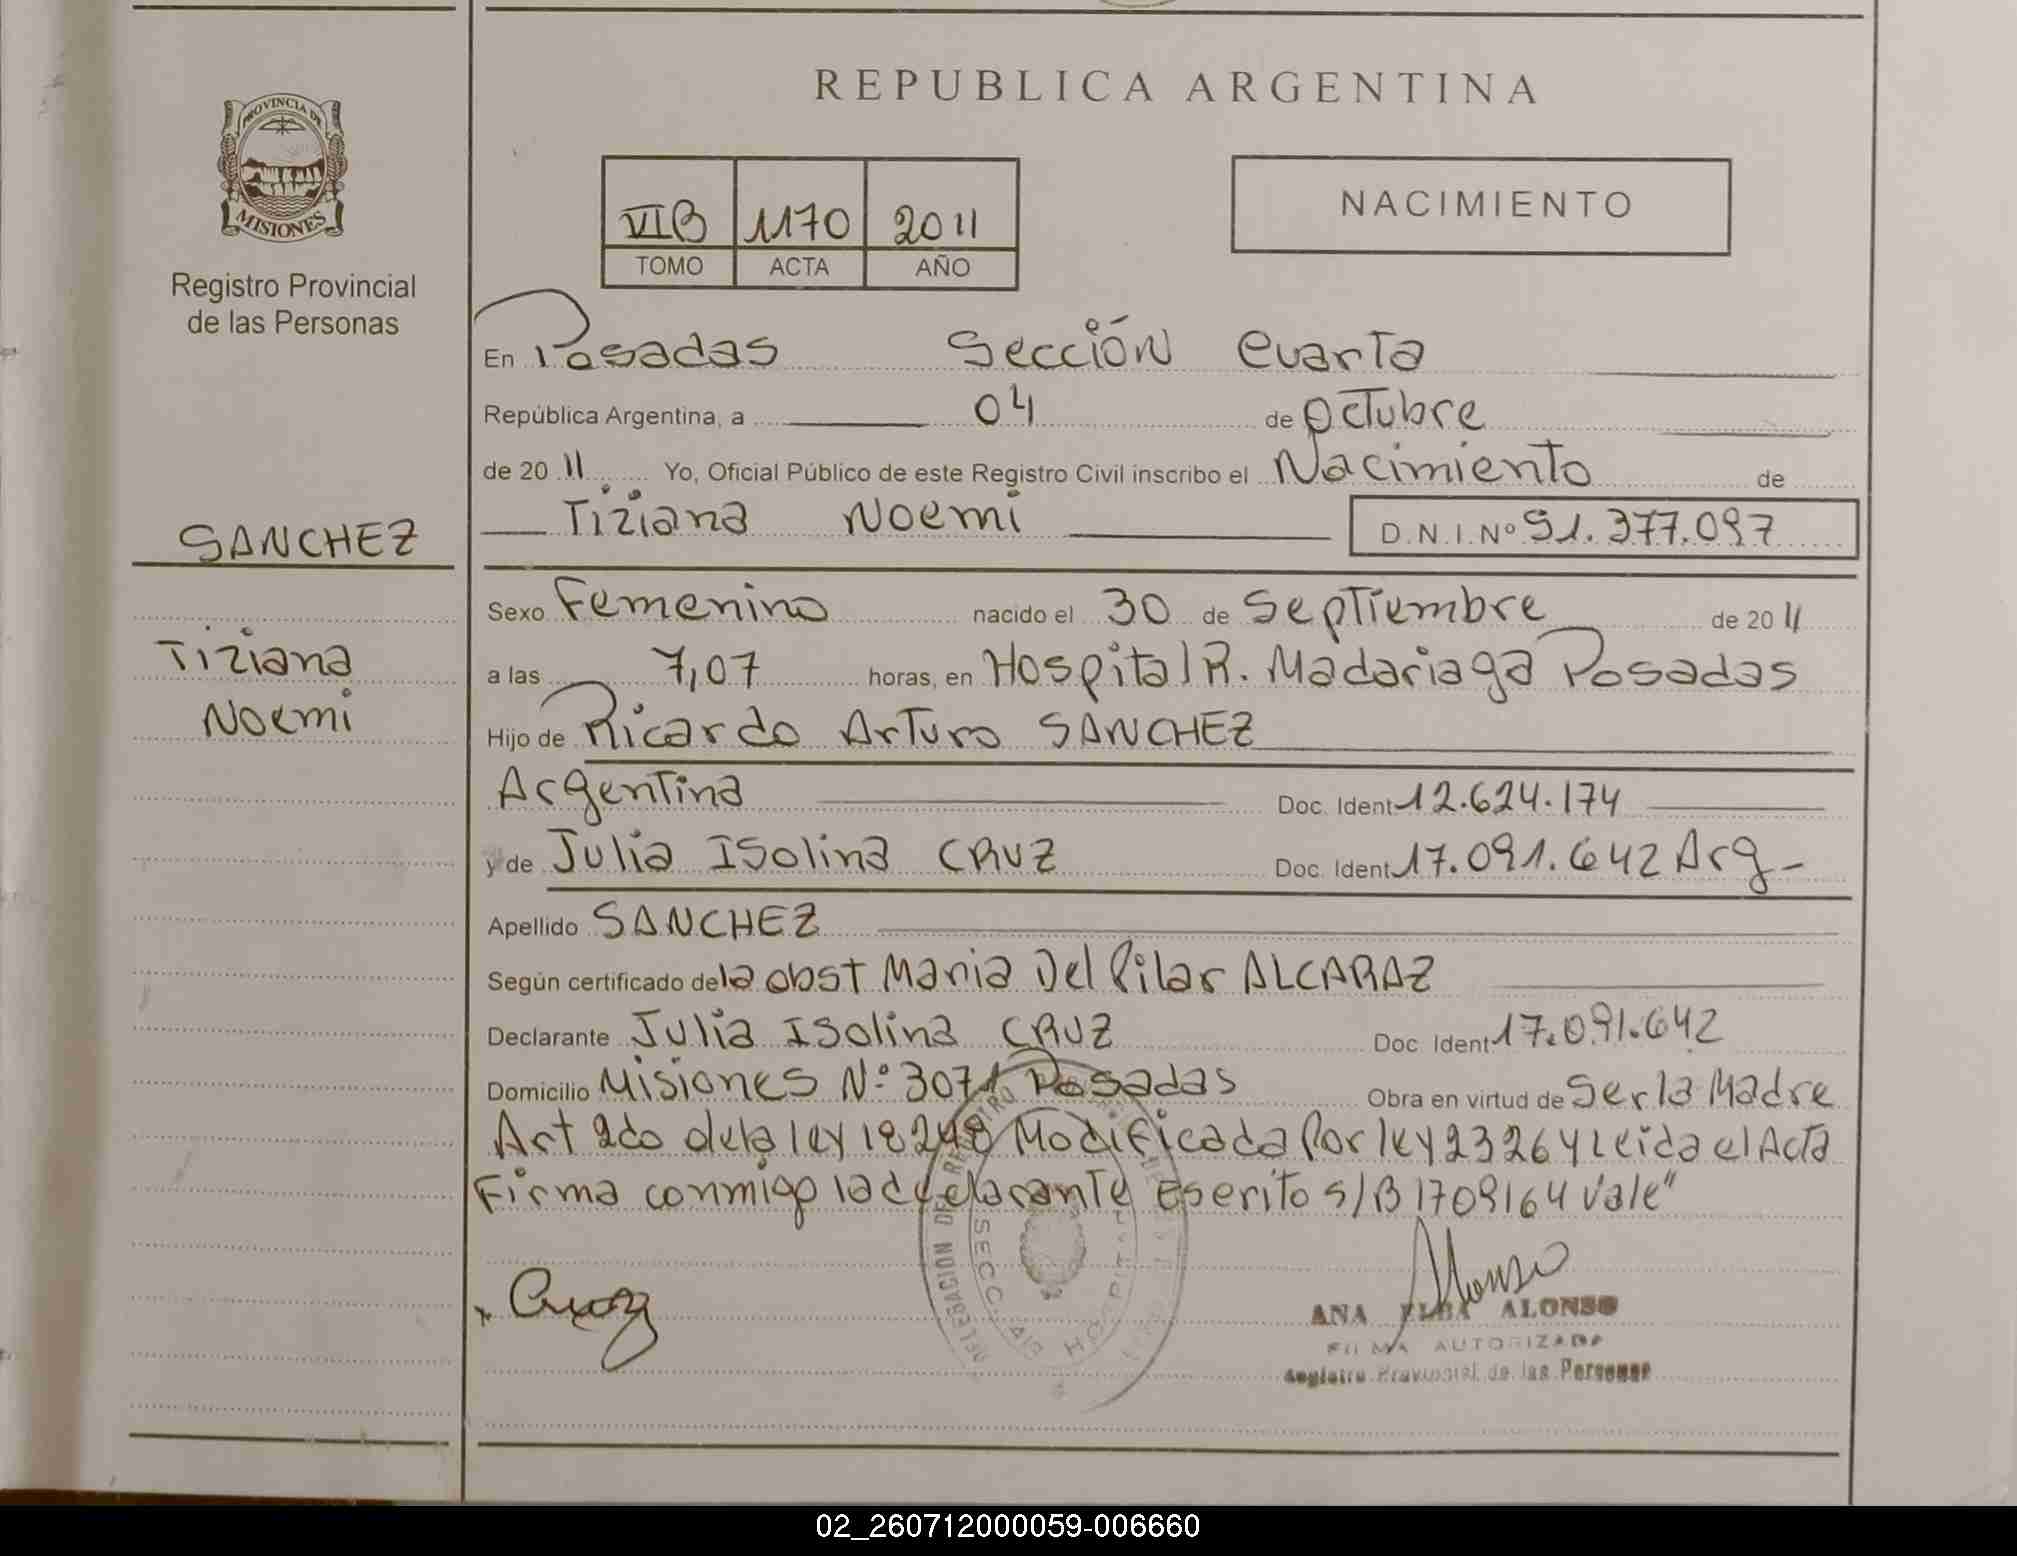 REPUBLICA ARGENTINA
PROVINCIA DE
MISIONES
Registro Provincial
de las Personas
VIB 1170 2011
TOMO ACTA AÑO
NACIMIENTO
En Posadas Sección Cuarta
República Argentina, a 04 de Octubre
de 2011 Yo, Oficial Público de este Registro Civil inscribo el Nacimiento de
Tiziana Noemi D.N.I.Nº 51.377.097
SANCHEZ
Tiziana
Noemi
Sexo Femenino nacido el 30 de Septiembre de 2011
a las 7,07 horas, en Hospital R. Madariaga Posadas
Hijo de Ricardo Arturo SANCHEZ
Argentina Doc. Ident 12.624.174
y de Julia Isolina CRUZ Doc. Ident 17.091.642 Arg-
Apellido SANCHEZ
Según certificado de la obst Maria Del Pilar ALCARAZ
Declarante Julia Isolina CRUZ Doc. Ident 17.091.642
Domicilio Misiones Nº 3071 Posadas Obra en virtud de Ser la Madre
Art 2do de la ley 18248 Modificada Por ley 23264 Leida el Acta
Firma conmigo la declarante Escrito s/B 1709164 Vale"
Cruz
Alonso
ANA ELBA ALONSO
FIRMA AUTORIZADA
Registro Provincial de las Personas
DELEGACION DE REGISTRO
SECC. 4ª HOSPITAL
02_260712000059-006660